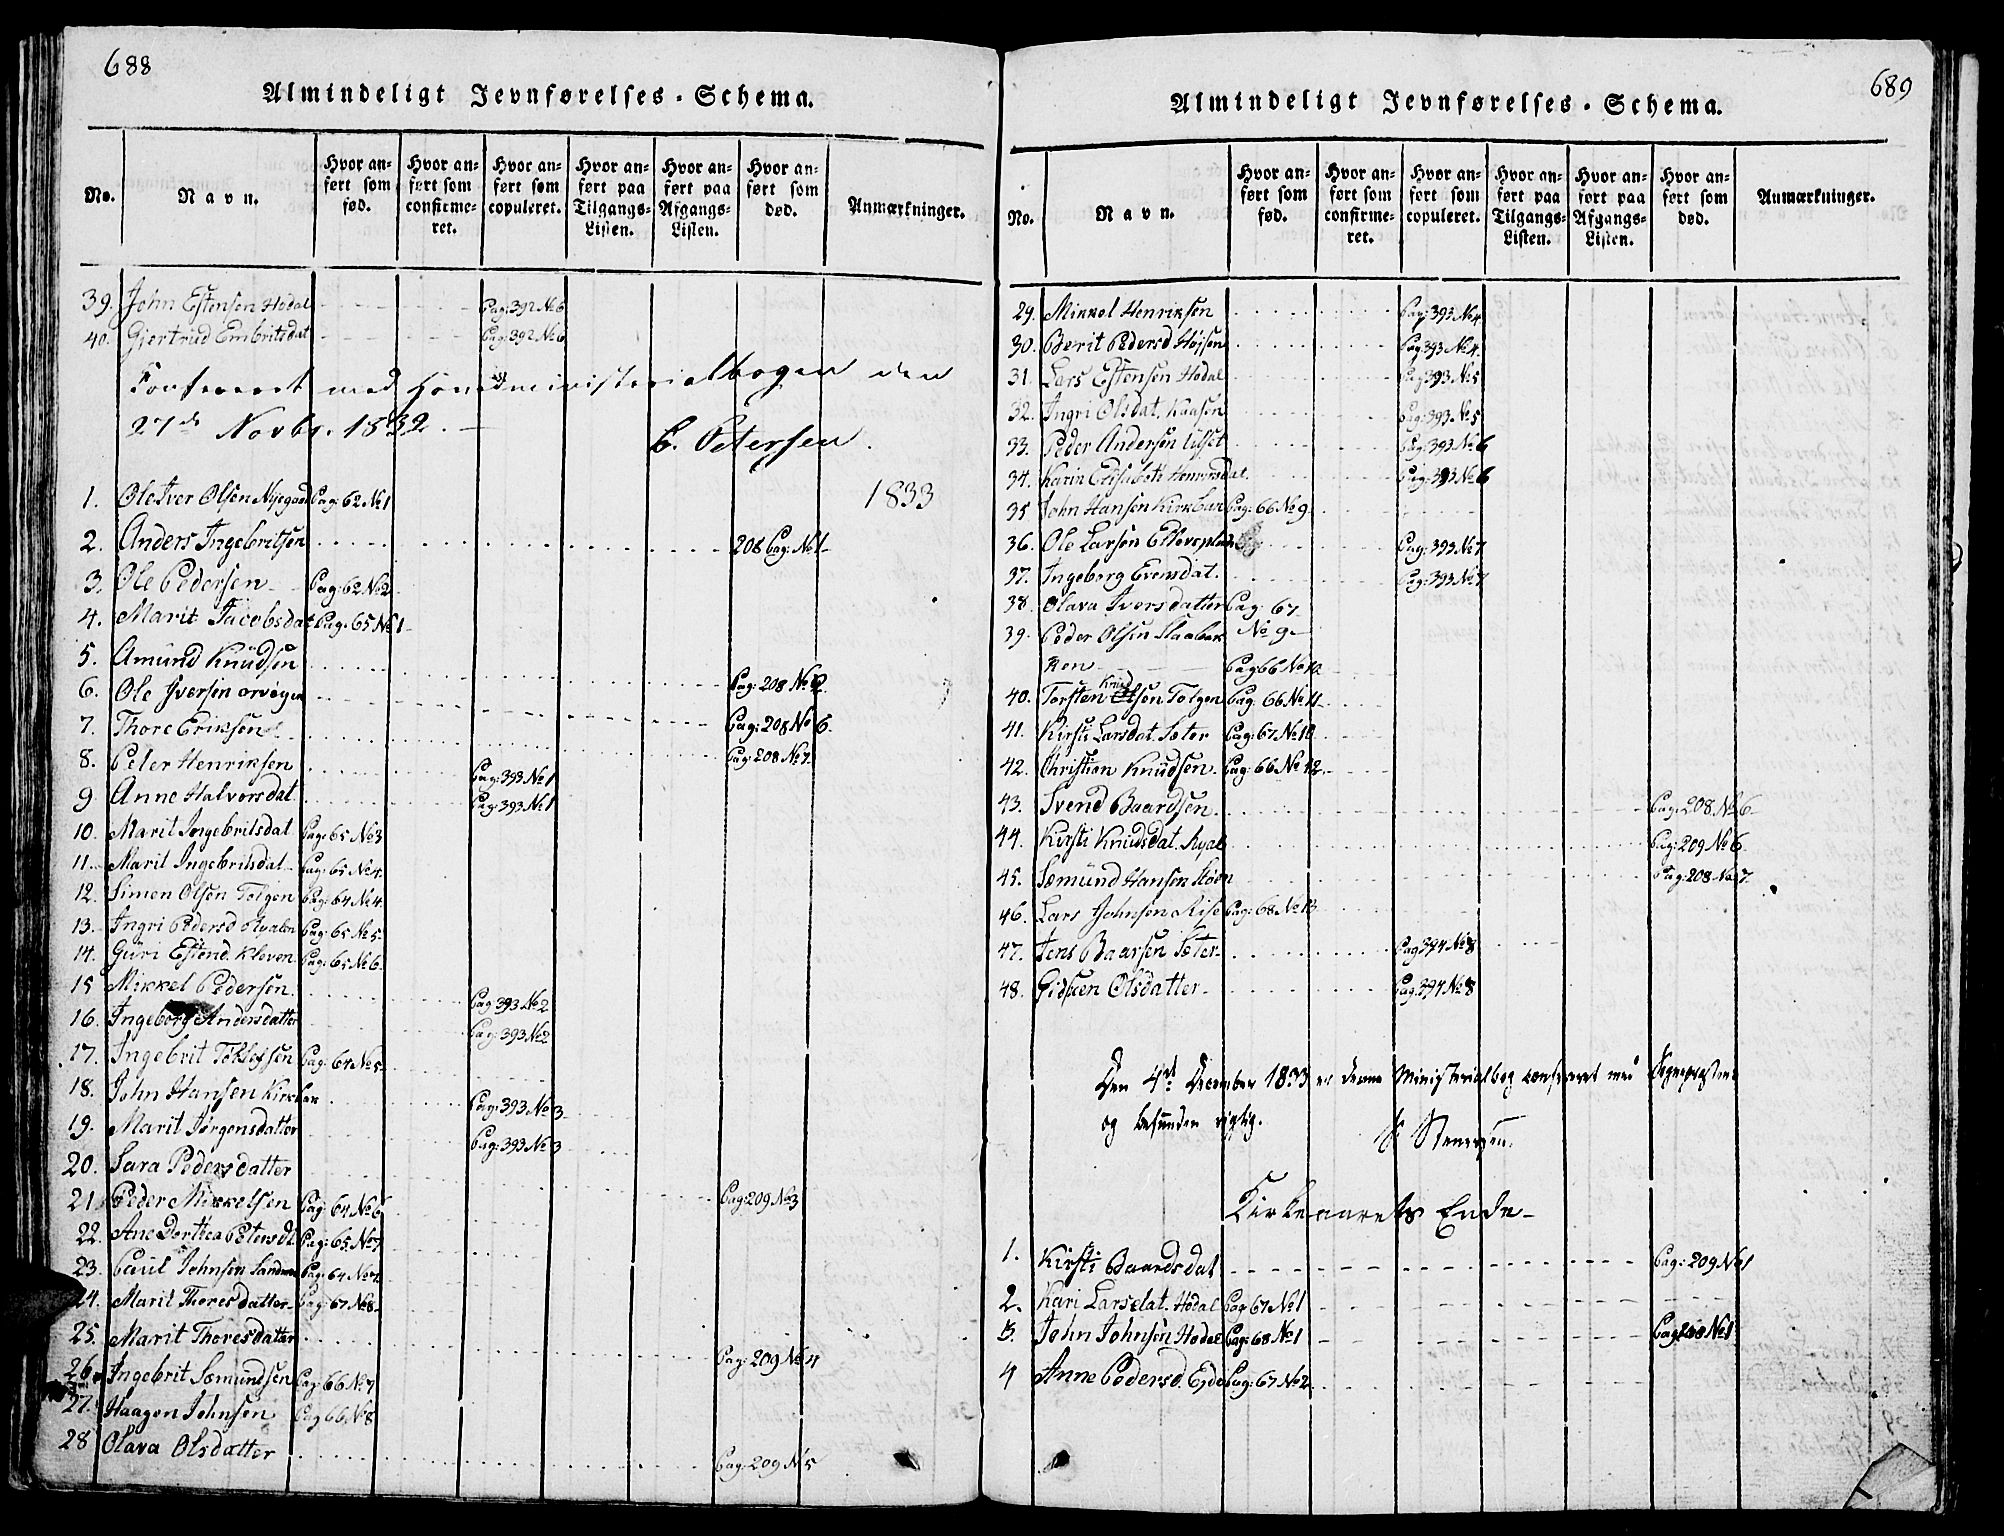 688
Almindeligt Jevnførelses-Schema.
No.
Navn.
Hvor anført som fød.
Hvor anført som confirmeret.
Hvor anført som copuleret.
Hvor anført paa Tilgangs-Listen.
Hvor anført paa Afgangs-Listen.
Hvor anført som død.
Anmærkninger.
39. John Estensen Hodal Pag: 392 No 6
40. Gjertrud Embritsdat Pag: 392 No 6
Confereret med Hovedministerialbogen den
27de Novbr. 1832.
C. Petersen.
1833
1. Ole Iver Olsen Nyegaard Pag: 62 No 1
2. Anders Ingebritsen 208 Pag: No 1
3. Ole Pedersen Pag: 62 No 2
4. Marit Jacobsdat Pag: 65 No 1
5. Amund Knudsen Pag: 208 No 2
6. Ole Iversen Pag: 208 No 6.
7. Thore Eriksen Pag: 208 No 7
8. Peter Henriksen Pag: 393 No 1
9 Anne Halvorsdat Pag: 393 No 1
10. Marit Ingebritsdat Pag: 65 No 3
11. Marit Ingebritsdat Pag: 65 No 4.
12. Simen Olsen Tolgen Pag: 64 No 4.
13. Ingri Pedersd Ryalen Pag: 65 No 5.
14. Guri Estend. Kleven Pag: 65 No 6.
15 Mikkel Pedersen Pag: 393 No 2
16. Ingeborg Andersdatter Pag: 393 No 2
17. Ingebrit Tollefsen Pag: 64 No 5
18. John Hansen Kirkbak Pag: 393 No 3
19. Marit Jørgensdatter Pag: 393 No 3
20. Sara Pedersdatter Pag: 209 No 3
21. Peder Mikkelsen Pag: 64 No 6
22. Ane Dorthea Petersdt Pag: 65 No 7
23. Paul Johnsen Pag: 64 No 7
24. Marit Thoresdatter Pag: 67 No 8
25. Marit Thoresdatter Pag: 209 No 4
26. Ingebrit Sæmundsen Pag: 66 No 7
27. Haagen Johnsen Pag 66 No 8
28 Olava Olsdatter Pag: 209 No 5
689
Almindeligt Jevnførelses-Schema.
No.
Navn.
Hvor anført som fød.
Hvor anført som confirmeret.
Hvor anført som copuleret.
Hvor anført paa Tilgangs-Listen.
Hvor anført paa Afgangs-Listen.
Hvor anført som død.
Anmærkninger.
29. Mikkel Henriksen Pag: 393 No 4
30. Berit Pedersd Høisen Pag 393 No 4.
31. Lars Estensen Hodal Pag 393 No 5
32. Ingri Olsdat. Kaasen Pag: 393 No 5
33. Peder Andersen Pag: 393 No 6
34. Karin Elisabeth Henriksdat. Pag: 393 No 6
35 John Hansen Kirkbak Pag: 66 No 9
36. Ole Larsen Pag: 393 No 7
37. Ingeborg Evensdat. Pag: 393 No 7
38. Olava Iversdatter Pag: 67.
No 9
39. Peder Olsen Slaabak
ken Pag 66 No 10
Knud
40. Torsten Olsen Tolgen Pag. 66 No 11
41. Kirsti Larsdat. Sæter Pag: 67 No 10
42. Christian Knudsen. Pag: 66 No 12
43. Svend Baardsen Pag: 208 No 6
44. Kirsti Knudsdat. Ryal Pag: 209 No 6
45. Sæmund Hansen Pag: 208 No 7
46. Lars Johnsen Rise Pag: 68 No 13
47. Jens Baarsen Sæter Pag 394 No 8
48. Gidsken Olsdatter Pag. 394 No 8
Den 4de December 1833 er denne Ministerialbog confereret med Sognepræstens
og befunden rigtig.
Stenersen.
Kirkeaarets Ende
1. Kirsti Baardsdat Pag: 209 No 1
2. Kari Larsdat. Hodal Pag 67 No 1
3. John Johnsen Hodal Pag: 68 No 1 Pag 208 No 1
4 Anne Pedersd. Eide Pag: 67 No 2